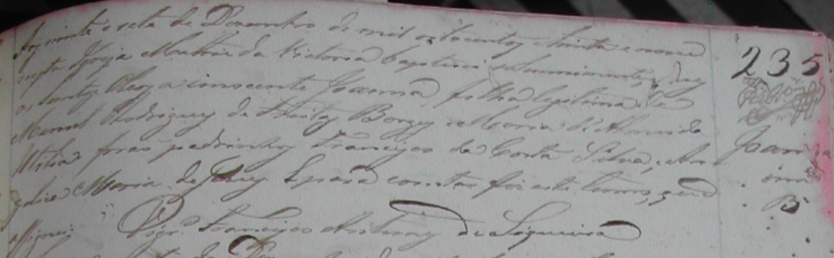 Aos vinte e sete de Dezembro de mil oitocentos e trinta e nove
nesta Igreja Matriz da Victoria baptizei solemnemente, e puz
os Santos Oleos a innocente Joanna, filha legitima de
Manoel Rodrigues de Freitas Borges e Maria d'Almeida
forão padrinhos Francisco da Costa Silva, e An
gelica Maria de Jesus, e para constar fiz este termo, que
assignei
Vigr.º Francisco Antonio de Siqueira
235
Joanna
B